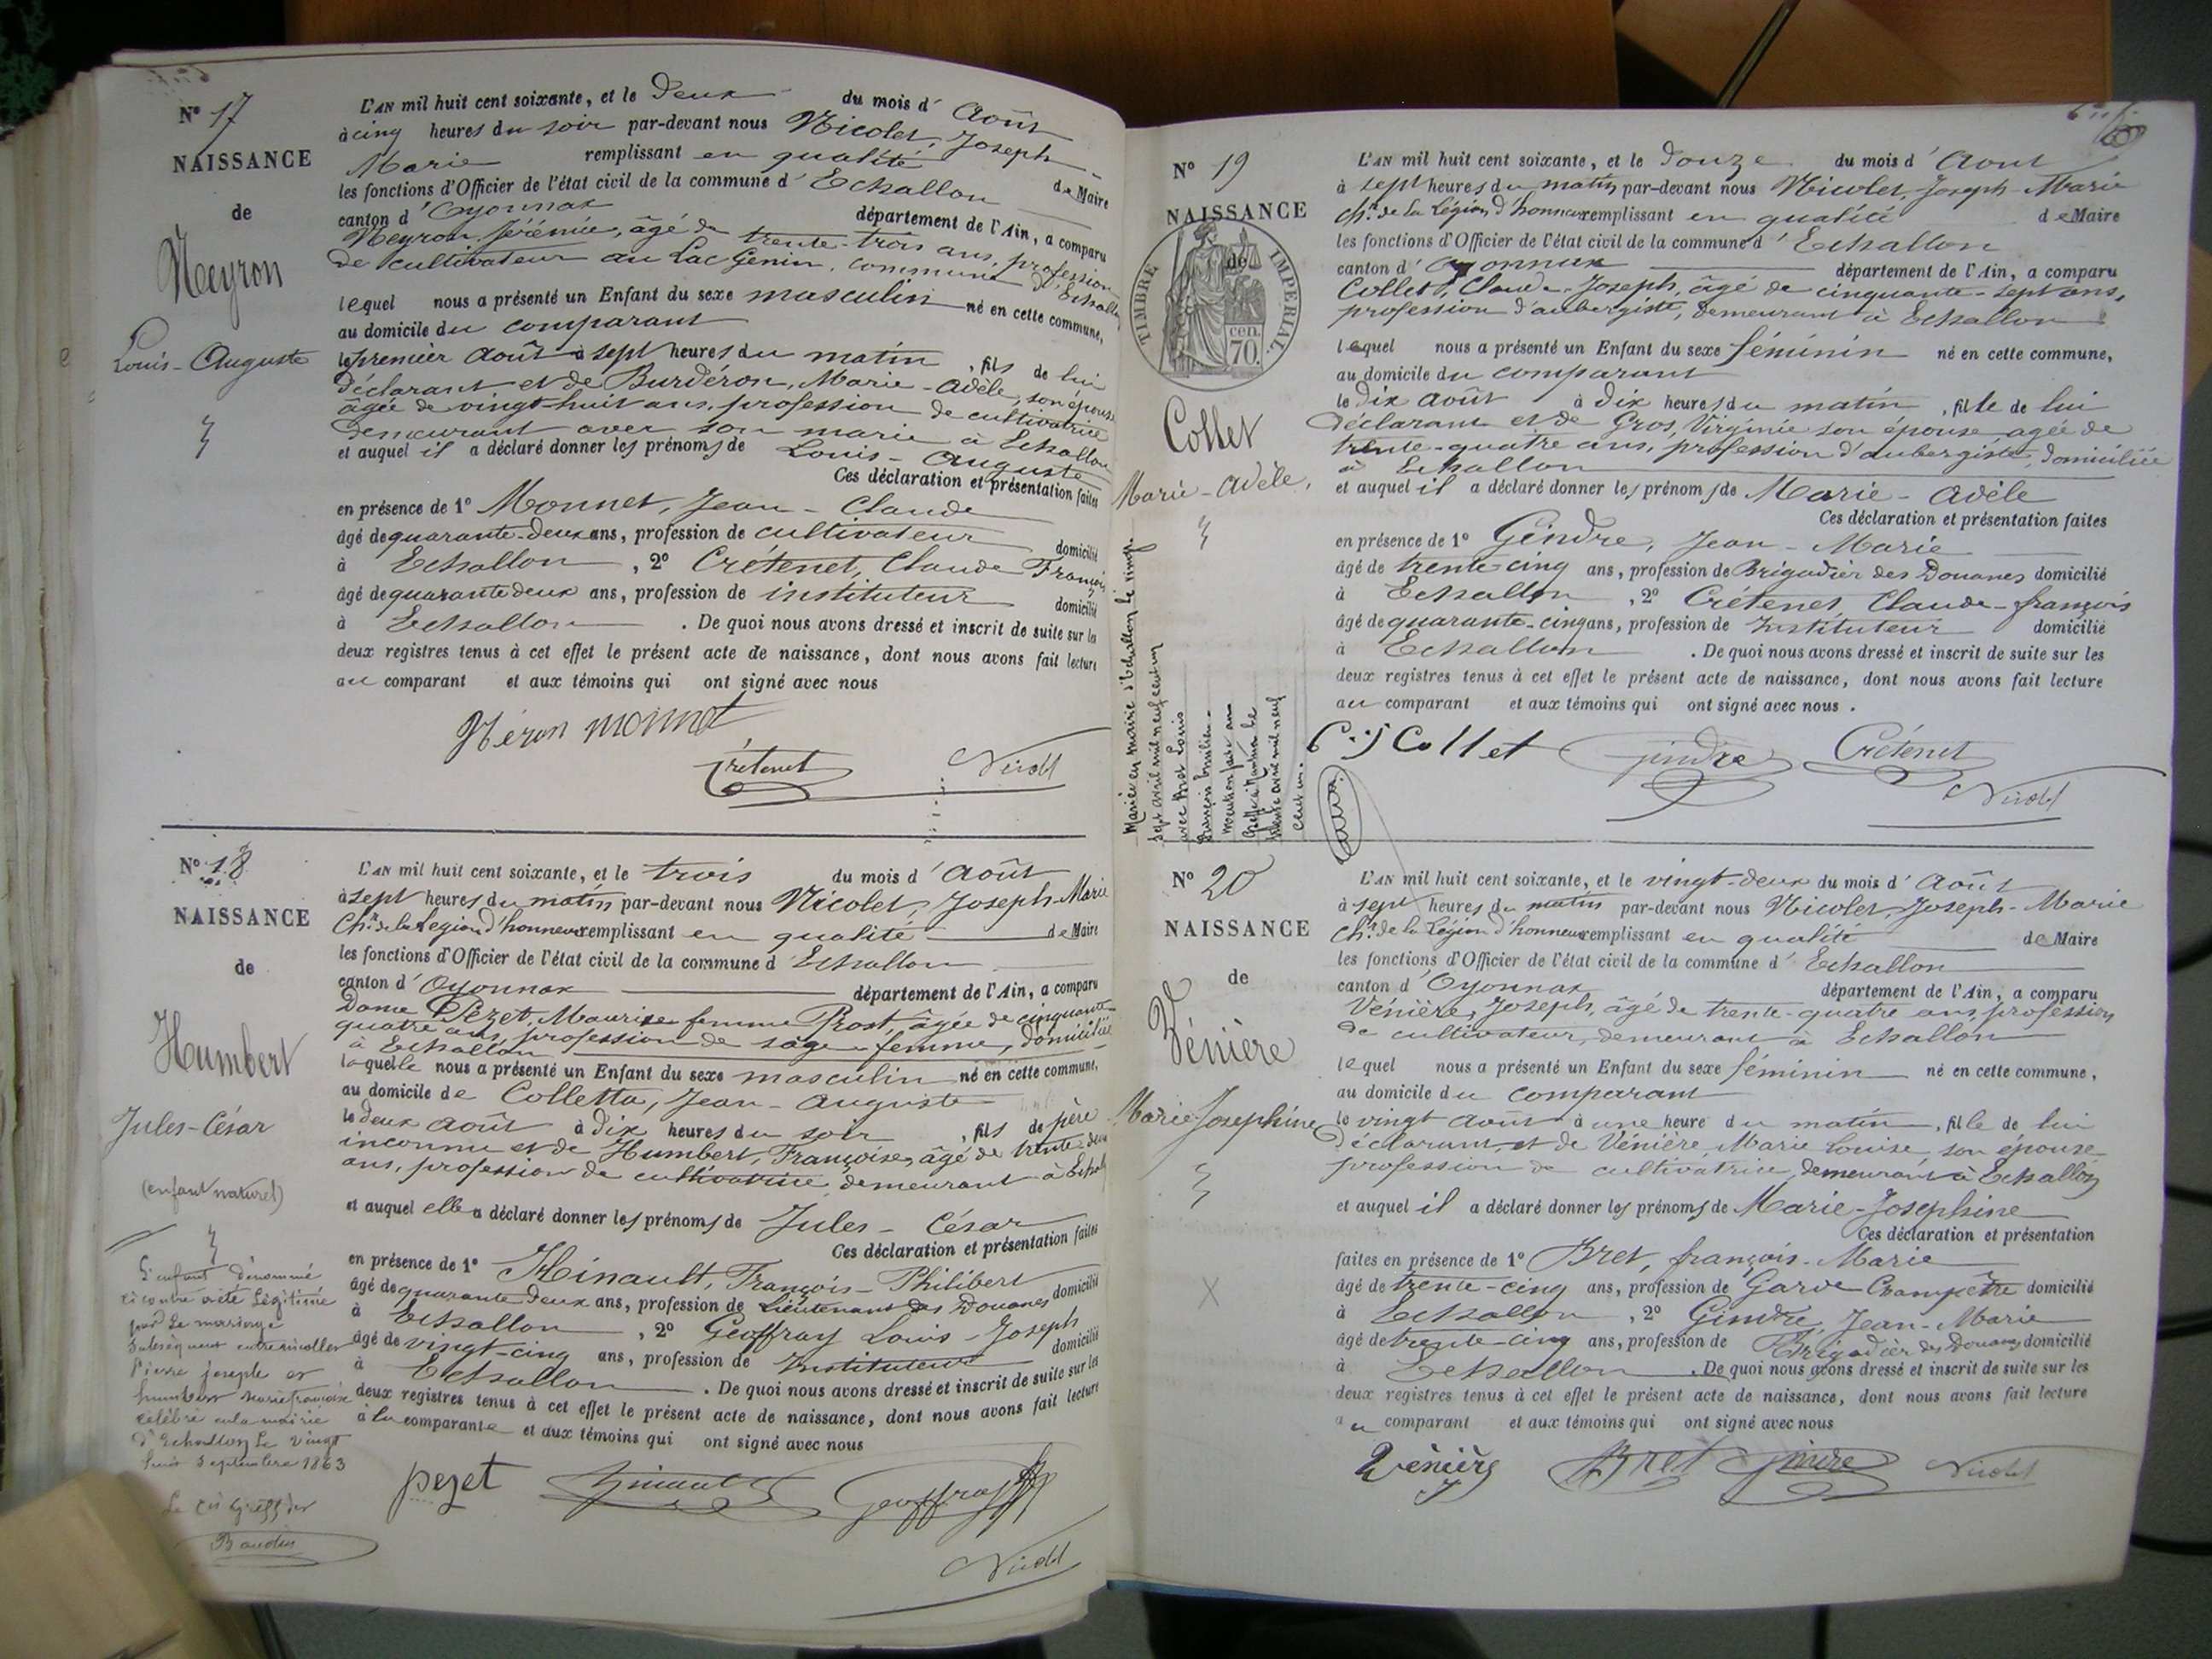 N° 17
NAISSANCE
de
Neyron
Louis-Auguste
L'AN mil huit cent soixante, et le Deux du mois d' Août
à cinq heures du soir par-devant nous Nicolet, Joseph
Marie remplissant en qualité de Maire
les fonctions d'Officier de l'état civil de la commune d' Echallon
canton d' Oyonnax département de l'Ain, a comparu
Neyron Jérémie, âgé de trente-trois ans, profession
de cultivateur au Lac Genin, commune d'Echallon
lequel nous a présenté un Enfant du sexe masculin né en cette commune,
au domicile du comparant
le premier Août à sept heures du matin, fils de lui
déclarant et de Burdéron, Marie-Adèle, son épouse
âgée de vingt-huit ans, profession de cultivatrice
demeurant avec son marie à Echallon
et auquel il a déclaré donner les prénoms de Louis-Auguste
Ces déclaration et présentation faites
en présence de 1° Monnet, Jean-Claude
âgé de quarante-deux ans, profession de cultivateur domicilié
à Echallon, 2° Crétenet, Claude François
âgé de quarante deux ans, profession de instituteur domicilié
à Echallon. De quoi nous avons dressé et inscrit de suite sur les
deux registres tenus à cet effet le présent acte de naissance, dont nous avons fait lecture
au comparant et aux témoins qui ont signé avec nous
Néron monnet
Crétenet Nicolet
N° 18
NAISSANCE
de
Humbert
Jules-César
(enfant naturel)
L'enfant dénommé
ci contre a été légitimé
par le mariage
subséquent entre nicollet
Pierre joseph et
humbert marie françoise
célébré en la mairie
d'Echallon le vingt
Septembre 1863
Le Greffier
Baudin
L'AN mil huit cent soixante, et le trois du mois d' Août
à sept heures du matin par-devant nous Nicolet, Joseph-Marie
Ch.er de la Légion d'honneur remplissant en qualité de Maire
les fonctions d'Officier de l'état civil de la commune d' Echallon
canton d' Oyonnax département de l'Ain, a comparu
Dame Pezet, Maurise femme Prost, âgée de cinquante
quatre ans, profession de sage-femme, domiciliée
à Echallon
laquelle nous a présenté un Enfant du sexe masculin né en cette commune,
au domicile de Colletta, Jean-Auguste
le deux Août à dix heures du soir, fils de père
inconnu et de Humbert, Françoise, âgé de trente-deux
ans, profession de cultivatrice demeurant à Echallon
et auquel elle a déclaré donner les prénoms de Jules-César
Ces déclaration et présentation faites
en présence de 1° Hinault, François-Philibert
âgé de quarante deux ans, profession de Lieutenant des Douanes domicilié
à Echallon, 2° Geoffray Louis-Joseph
âgé de vingt-cinq ans, profession de Instituteur domicilié
à Echallon. De quoi nous avons dressé et inscrit de suite sur les
deux registres tenus à cet effet le présent acte de naissance, dont nous avons fait lecture
à la comparante et aux témoins qui ont signé avec nous
pezet hinault Geoffray
Nicolet
N° 19
NAISSANCE
de
TIMBRE IMPERIAL
70 cen.
Collet
Marie-Adèle,
Mariée en mairie d'Echallon le vingt
sept avril mil neuf cent un
avec Bret Louis
François Emilien.
Mention faite au
Greffe à Nantua le
trente avril mil neuf
cent un.
L'AN mil huit cent soixante, et le Douze du mois d' Aout
à sept heures du matin par-devant nous Nicolet, Joseph-Marie
Ch.er de la Légion d'honneur remplissant en qualité de Maire
les fonctions d'Officier de l'état civil de la commune d' Echallon
canton d' Oyonnax département de l'Ain, a comparu
Collet, Claude-Joseph, âgé de cinquante-sept ans,
profession d'aubergiste, demeurant à Echallon
lequel nous a présenté un Enfant du sexe féminin né en cette commune,
au domicile du comparant
le Dix Août à Dix heures du matin, fille de lui
déclarant et de Gros, Virginie son épouse agée de
trente-quatre ans, profession d'aubergiste, domiciliée
à Echallon
et auquel il a déclaré donner les prénoms de Marie-Adèle
Ces déclaration et présentation faites
en présence de 1° Gindre, Jean-Marie
âgé de trente-cinq ans, profession de Brigadier des Douanes domicilié
à Echallon, 2° Crétenet, Claude-françois
âgé de quarante-cinq ans, profession de Instituteur domicilié
à Echallon. De quoi nous avons dressé et inscrit de suite sur les
deux registres tenus à cet effet le présent acte de naissance, dont nous avons fait lecture
au comparant et aux témoins qui ont signé avec nous.
C.j Collet gindre Crétenet
Nicolet
N° 20
NAISSANCE
de
Vénière
Marie Josephine
L'AN mil huit cent soixante, et le vingt-deux du mois d' Août
à sept heures du matin par-devant nous Nicolet, Joseph-Marie
Ch.er de la Légion d'honneur remplissant en qualité de Maire
les fonctions d'Officier de l'état civil de la commune d' Echallon
canton d' Oyonnax département de l'Ain, a comparu
Vénière, Joseph, âgé de trente-quatre ans, profession
de cultivateur, demeurant à Echallon
lequel nous a présenté un Enfant du sexe féminin né en cette commune,
au domicile du comparant
le vingt Août à une heure du matin, fille de lui
déclarant et de Vénière, Marie Louise, son épouse
profession de cultivatrice, demeurant à Echallon
et auquel il a déclaré donner les prénoms de Marie-Josephine
Ces déclaration et présentation
faites en présence de 1° Bret, françois-Marie
âgé de trente-cinq ans, profession de Garde Champêtre domicilié
à Echallon, 2° Gindre, Jean-Marie
âgé de trente-cinq ans, profession de Brigadier des Douanes domicilié
à Echallon. De quoi nous avons dressé et inscrit de suite sur les
deux registres tenus à cet effet le présent acte de naissance, dont nous avons fait lecture
au comparant et aux témoins qui ont signé avec nous
Vénière Bret gindre Nicolet